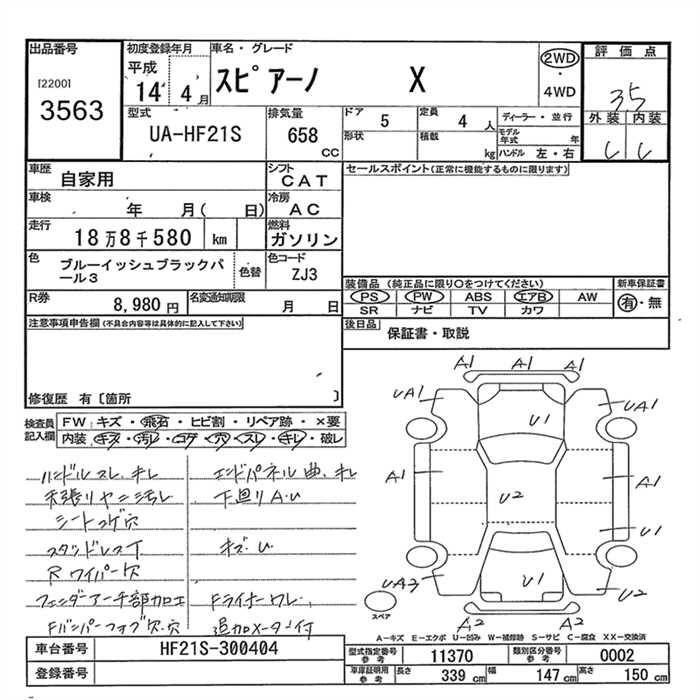 出品番号
[2200]
3563
初度登録年月
平成
14 4月
車名・グレード
スピアーノ X
2WD
・
4WD
評価点
35
外装 内装
C C
型式
UA-HF21S
排気量
658
CC
ドア 5
形状
定員 4 人
積載 kg
ディーラー・並行
モデル年式 年
ハンドル 左・右
車歴
自家用
シフト
CAT
車検
年 月( 日)
冷房
AC
走行
18万8千580 km
燃料
ガソリン
色
ブルーイッシュブラックパール3
色替
色コード
ZJ3
R券
8,980円
名変通知期限
月 日
セールスポイント(正常に機能するものに限ります)
装備品(純正品に限り○をつけてください)
PS PW ABS エアB AW
SR ナビ TV カワ
新車保証書
有・無
後日品
保証書・取説
注意事項申告欄(不具合内容等は具体的に記入して下さい)
修復歴 有〔箇所 〕
検査員記入欄
FW キズ・飛石・ヒビ割・リペア跡・×要
内装 キズ・汚レ・コゲ・穴・スレ・キレ・破レ
ハンドルスレ、キレ
天張リヤニ汚レ
シートコゲ穴
スタッドレスT
Rワイパー欠
フェンダーアーチ部加工
Fバンパーフォグ欠・穴
エンドパネル曲、キレ
下廻りA・U
キズ・U
Fライナーワレ
追加メーター付
A1 A1 A1
UA1 U1 UA1
A1 U2 A1
U1
UA3 U1 U2
A2 A2
スペア
A－キズ E－エクボ U－凹み W－補修跡 S－サビ C－腐食 XX－交換済
車台番号
HF21S-300404
登録番号
型式指定番号
参考
11370
類別区分番号
参考
0002
車庫証明用
参考
長さ 339 cm
幅 147 cm
高さ 150 cm